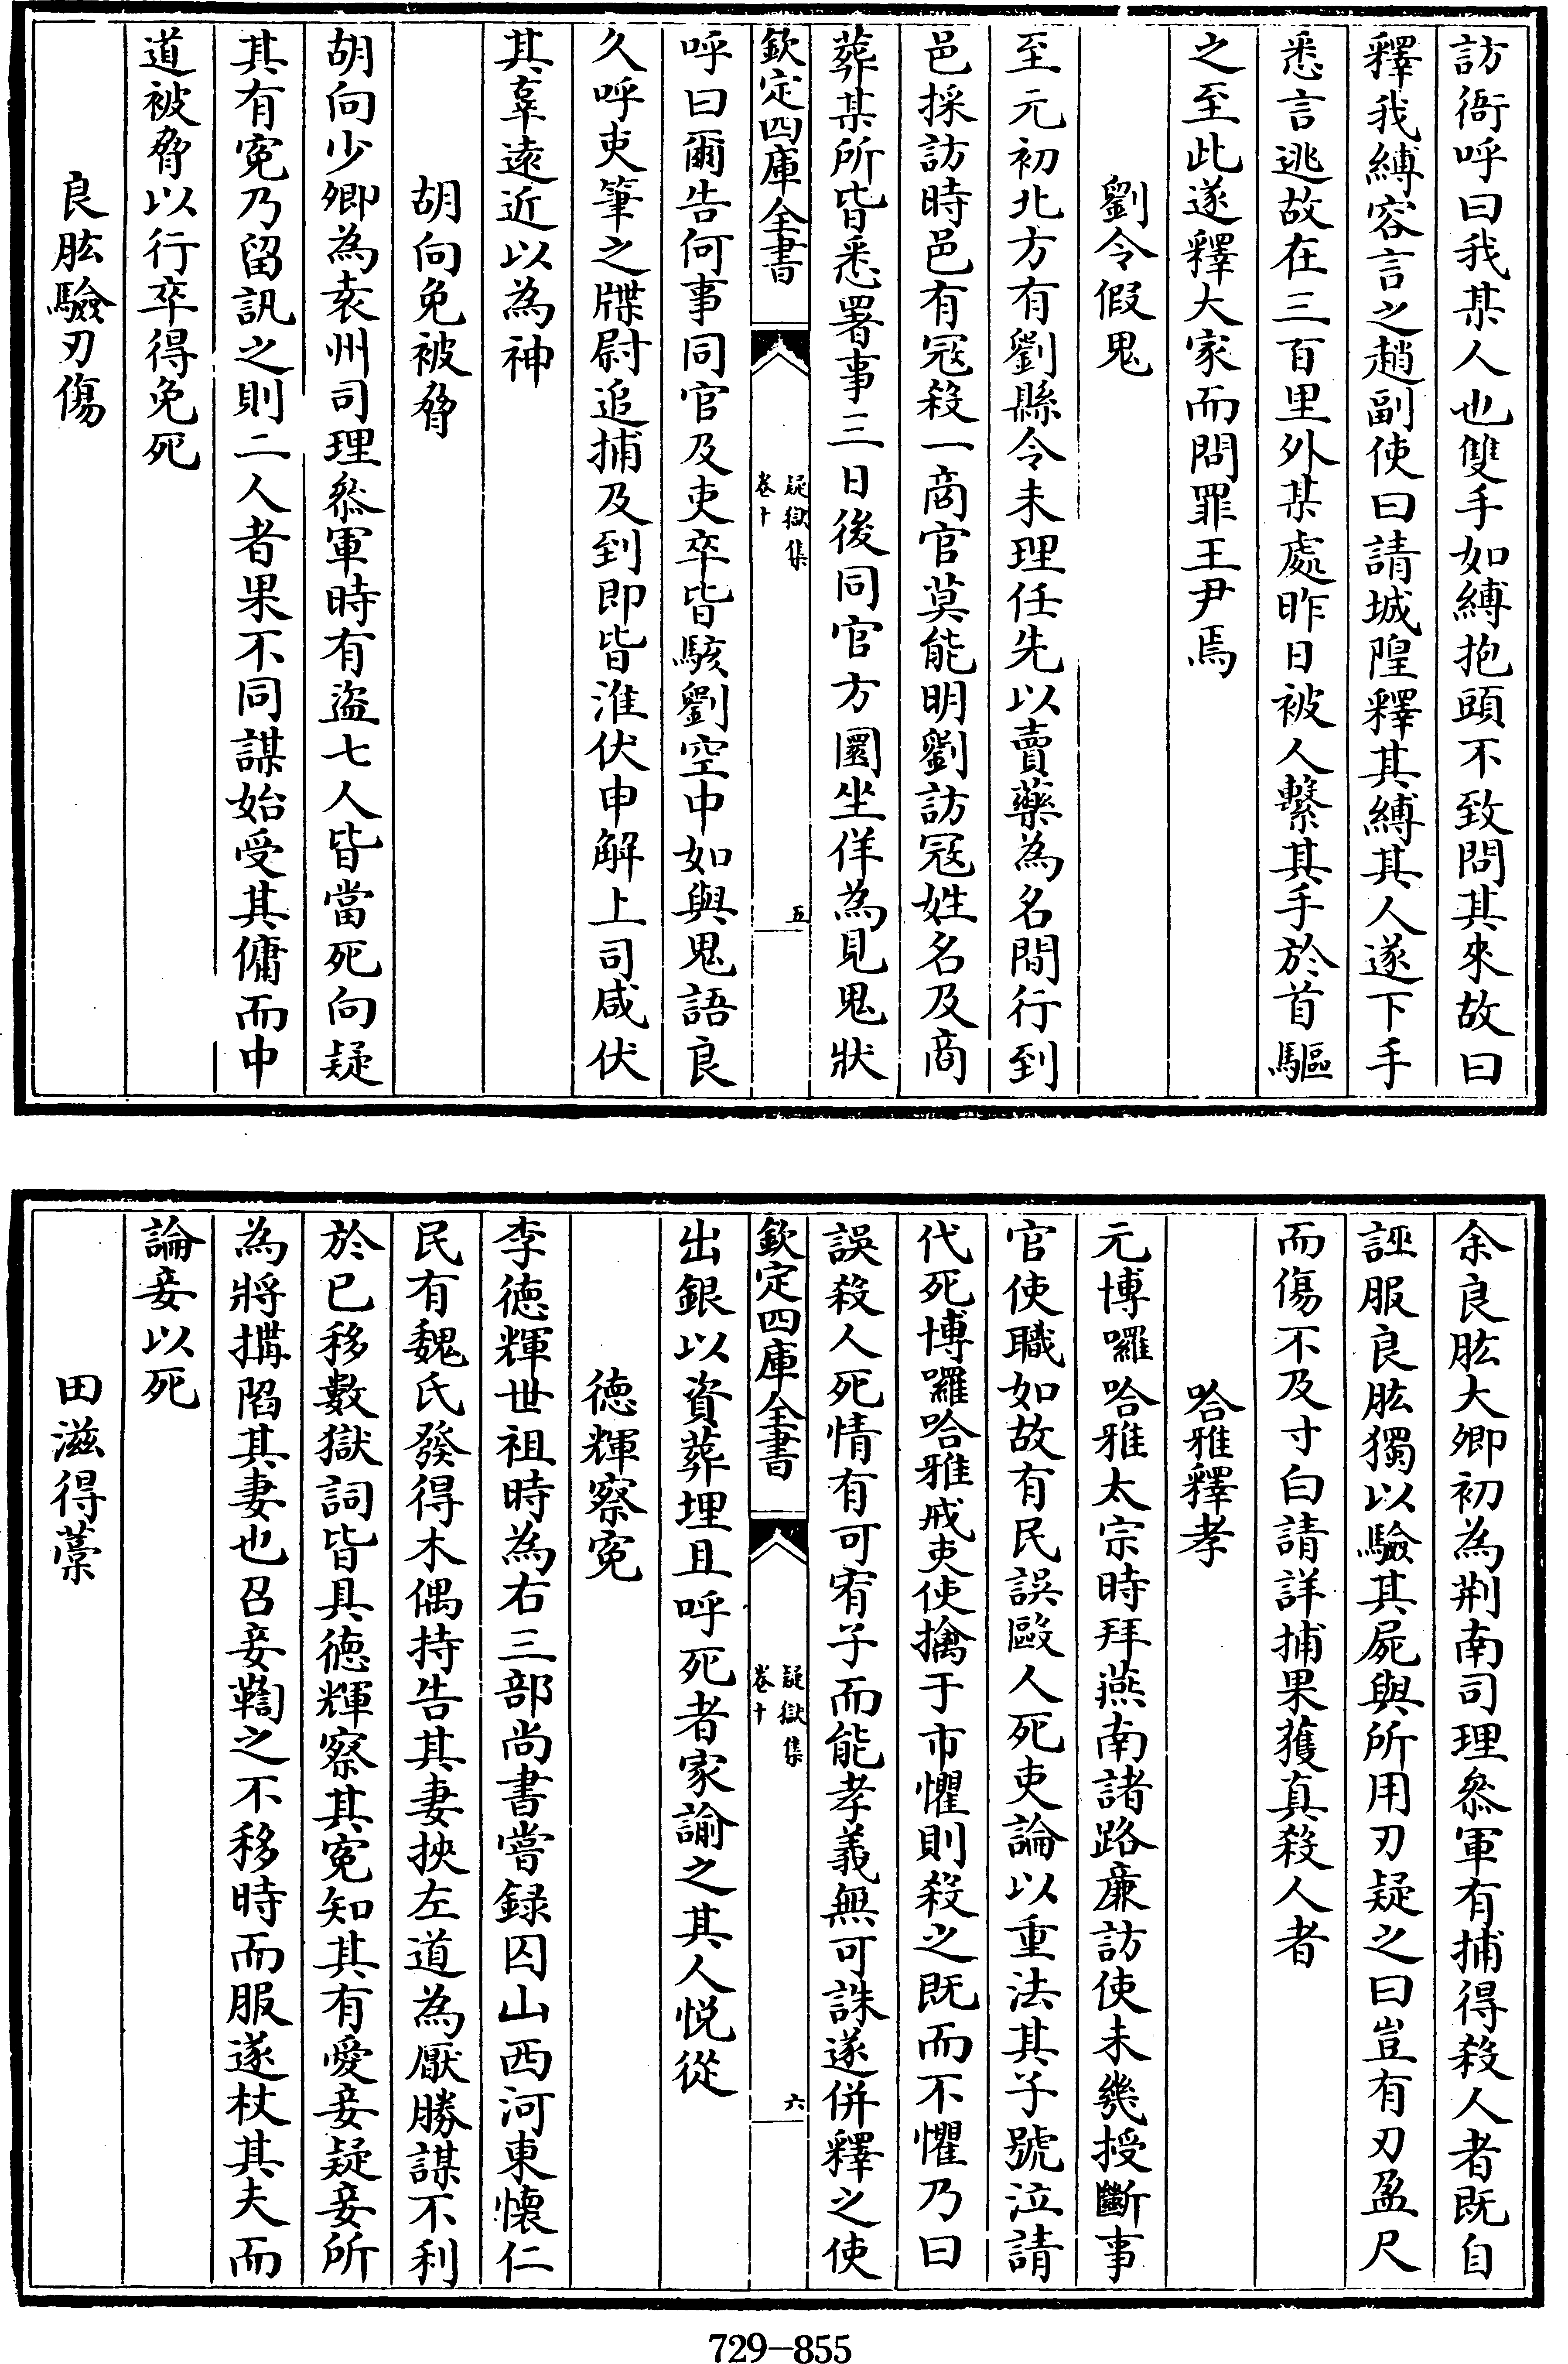 訪衙呼曰我某人也雙手如縛抱頭不致問其來故曰
釋我縛容言之趙副使曰請城隍釋其縛其人遂下手
悉言逃故在三百里外某處昨日被人繫其手於首驅
之至此遂釋大家而問罪王尹焉
劉令假鬼
至元初北方有劉縣令未理任先以賣藥為名間行到
邑採訪時邑有冦殺一商官莫能明劉訪冦姓名及商
葬某所皆悉署事三日後同官方圜坐佯為見鬼狀
欽定四庫全書
疑獄集
卷十
五
呼曰爾告何事同官及吏卒皆駭劉空中如與鬼語良
久呼吏筆之牒尉追捕及到即皆淮伏申解上司咸伏
其辜遠近以為神
胡向免被脅
胡向少卿為袁州司理叅軍時有盜七人皆當死向疑
其有寃乃留訊之則二人者果不同謀始受其傭而中
道被脅以行卒得免死
良肱驗刃傷
余良肱大卿初為荆南司理叅軍有捕得殺人者既自
誣服良肱獨以驗其屍與所用刃疑之曰豈有刃盈尺
而傷不及寸白請詳捕果獲真殺人者
哈雅釋孝
元博囉哈雅太宗時拜燕南諸路廉訪使未幾授斷事
官使職如故有民誤毆人死吏論以重法其子號泣請
代死博囉哈雅戒吏使擒于市懼則殺之既而不懼乃曰
誤殺人死情有可宥子而能孝義無可誅遂併釋之使
欽定四庫全書
疑獄集
卷十
六
出銀以資葬埋且呼死者家諭之其人悅從
德輝察寃
李德輝世祖時為右三部尚書嘗録囚山西河東懷仁
民有魏氏發得木偶持告其妻挾左道為厭勝謀不利
於已移數獄詞皆具德輝察其寃知其有愛妾疑妾所
為將搆陷其妻也召妾鞫之不移時而服遂杖其夫而
論妾以死
田滋得藁
729-855